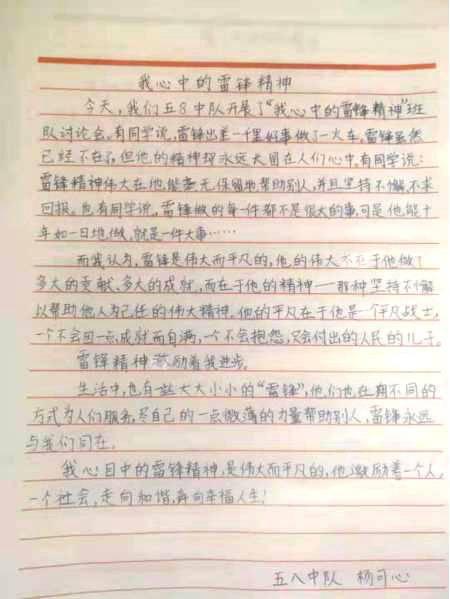 我心中的雷锋精神
今天,我们五8中队开展了“我心中的雷锋精神”班
队讨论会。有同学说,雷锋出差一千里好事做了一火车,雷锋虽然
已经不在了,但他的精神却永远大留在人们心中,有同学说:
雷锋精神伟大在地能毫无保留地帮助别人,并且坚持不懈,不求
回报。也有同学说,雷锋做的每一件都不是很大的事,可是他能十
年如一日地做,就是一件大事……
而我认为,雷锋是伟大而平凡的,他的伟大不在于他做了
多大的贡献、多大的成就,而在于他的精神——那种坚持不懈
以帮助他人为己任的伟大精神。他的平凡在于他是一个平凡战士,
一个不会因一点成就而自满,一个不会抱怨,只会付出的人民的儿子。
雷锋精神激励着我进步。
生活中,也有些大大小小的“雷锋”,他们也在用不同的
方式为人们服务,尽自己的一点微薄的力量帮助别人,雷锋永远
与我们同在。
我心目中的雷锋精神,是伟大而平凡的,他激励着一个人,
一个社会,走向和谐,奔向幸福人生!
五八中队 杨可心